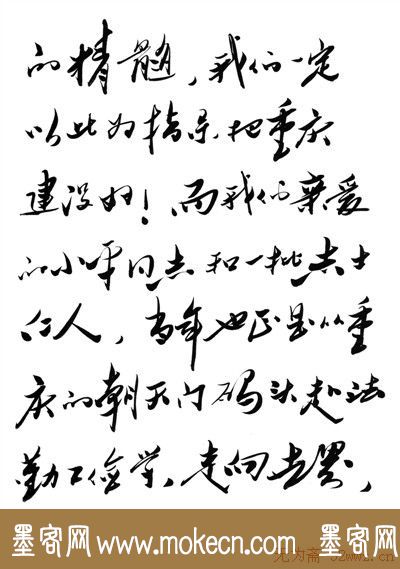 的精髓，我们一定
以此为指导，把重庆
建设好！而我们亲爱
的小平同志和一批志士
仁人，当年也正是从重
庆的朝天门码头赴法
勤工俭学，走向世界，
墨客网 www.mokecn.com 墨客网